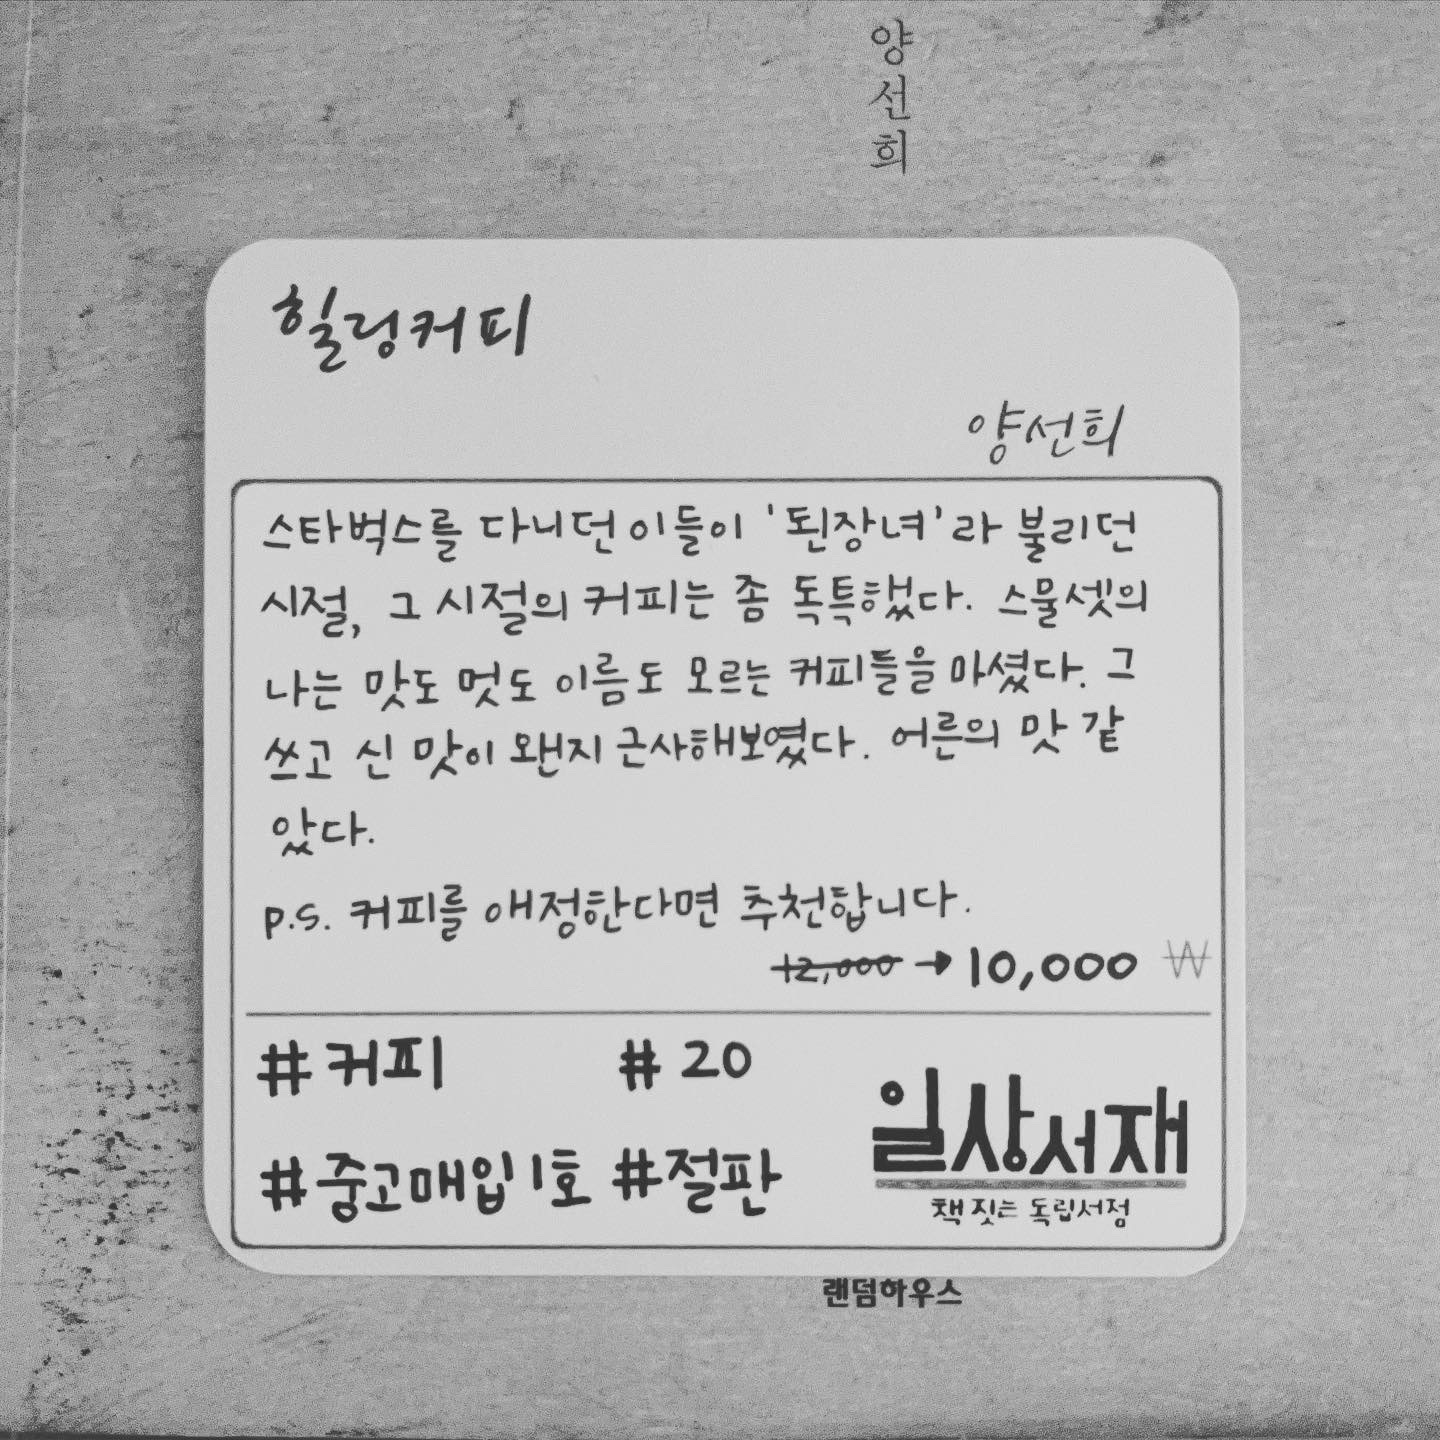 양선희
힐링커피
양선희
스타벅스를 다니던 이들이 '된장녀'라 불리던
시절, 그 시절의 커피는 좀 독특했다. 스물셋의
나는 맛도 멋도 이름도 모르는 커피들을 마셨다. 그
쓰고 신 맛이 왠지 근사해보였다. 어른의 맛 같
았다.
P.S. 커피를 애정한다면 추천합니다.
12,000 → 10,000 ₩
#커피 #20
#중고매입1호 #절판
일상서재
책 짓는 독립서점
랜덤하우스